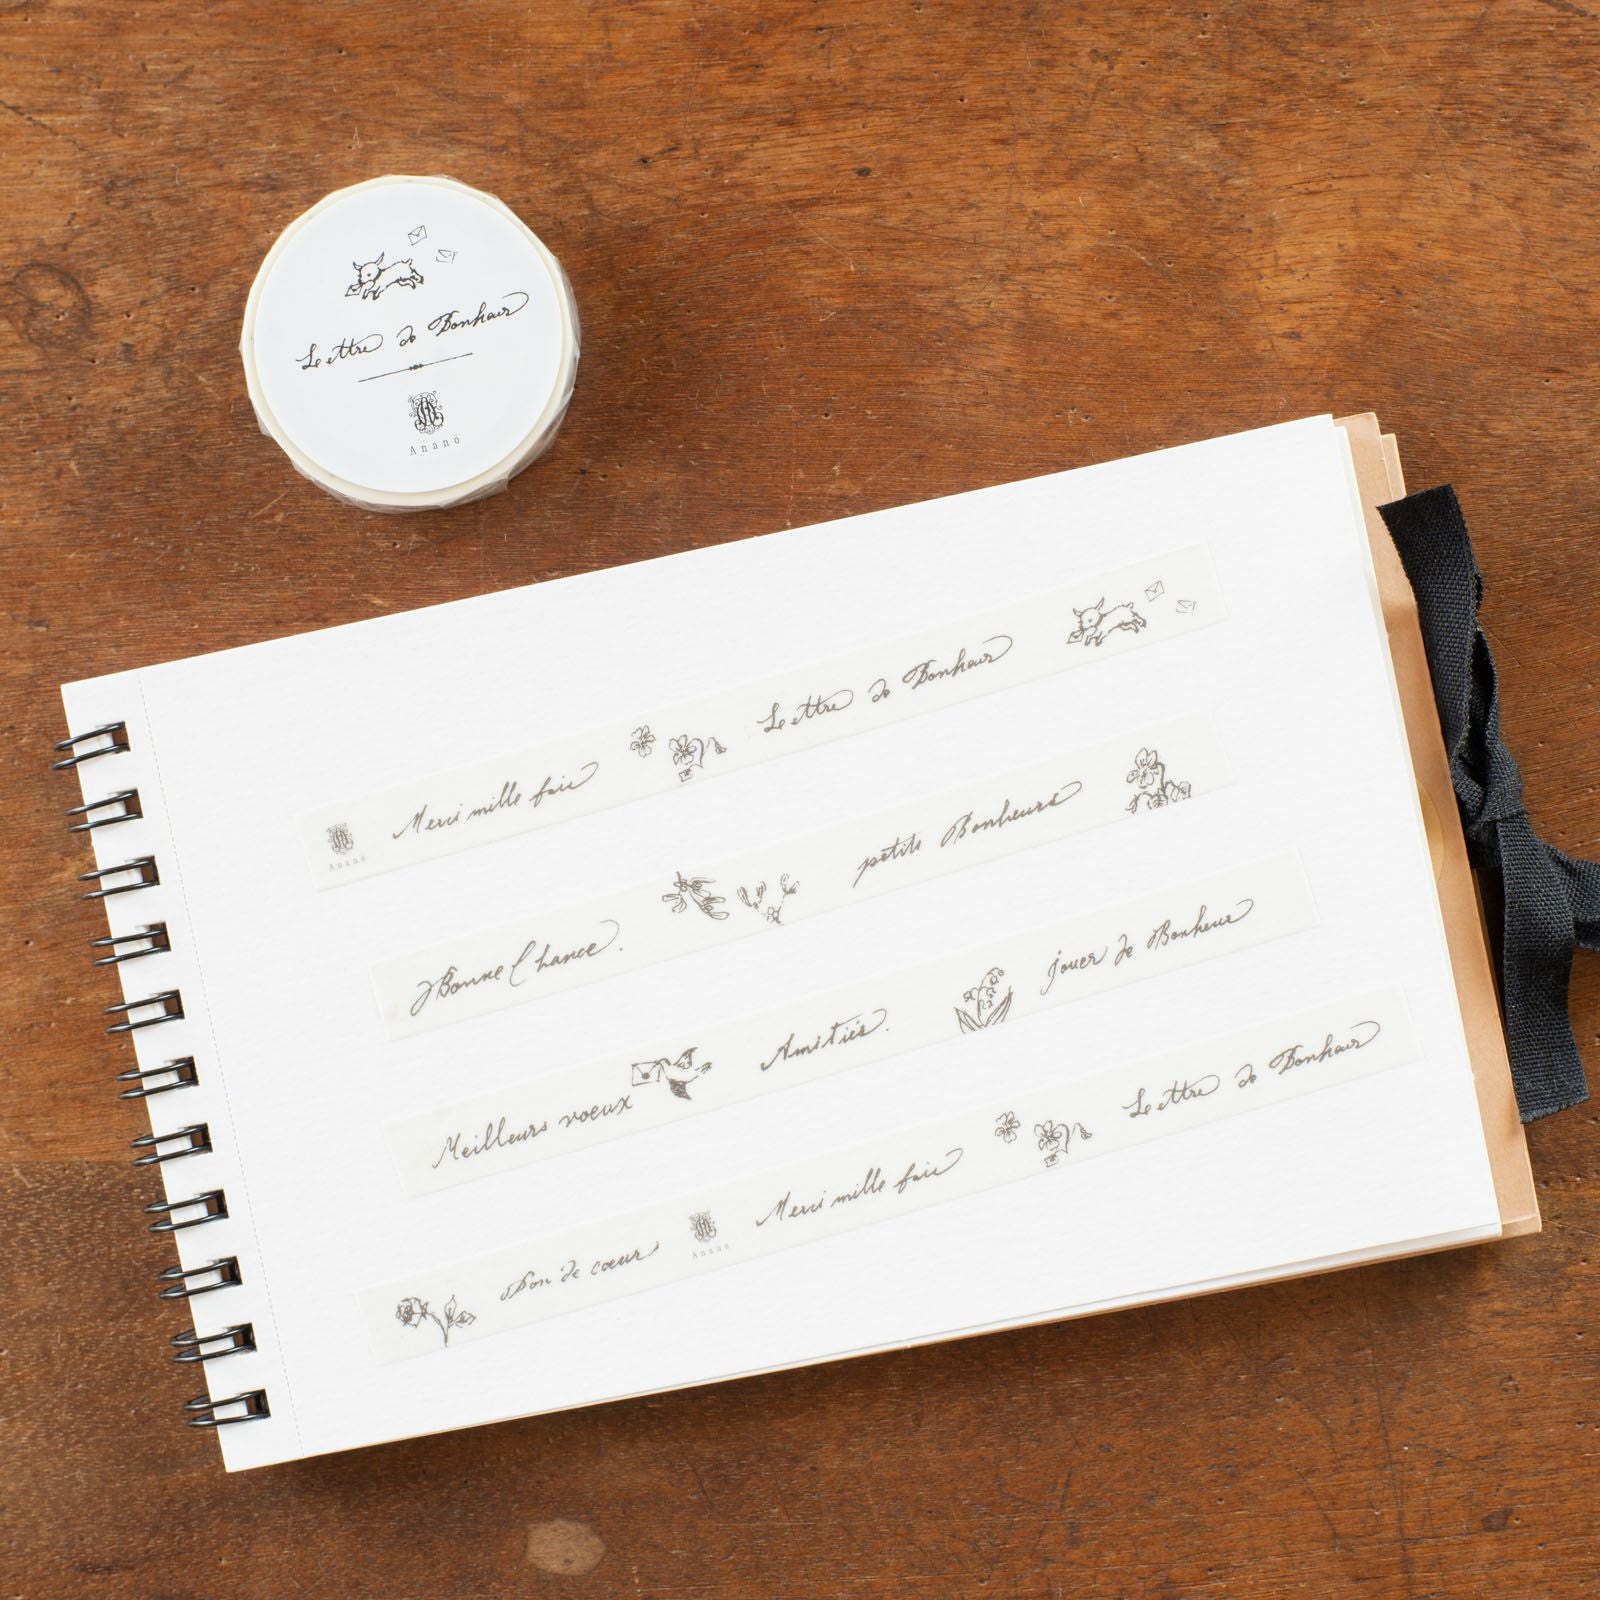 Lettre de Bonheur
Ananö
Ananö Merci mille fois Lettre de Bonheur
Bonne Chance. petits Bonheurs
Meilleurs voeux Amitiés. jouer de Bonheur
Don de coeur Ananö Merci mille fois Lettre de Bonheur